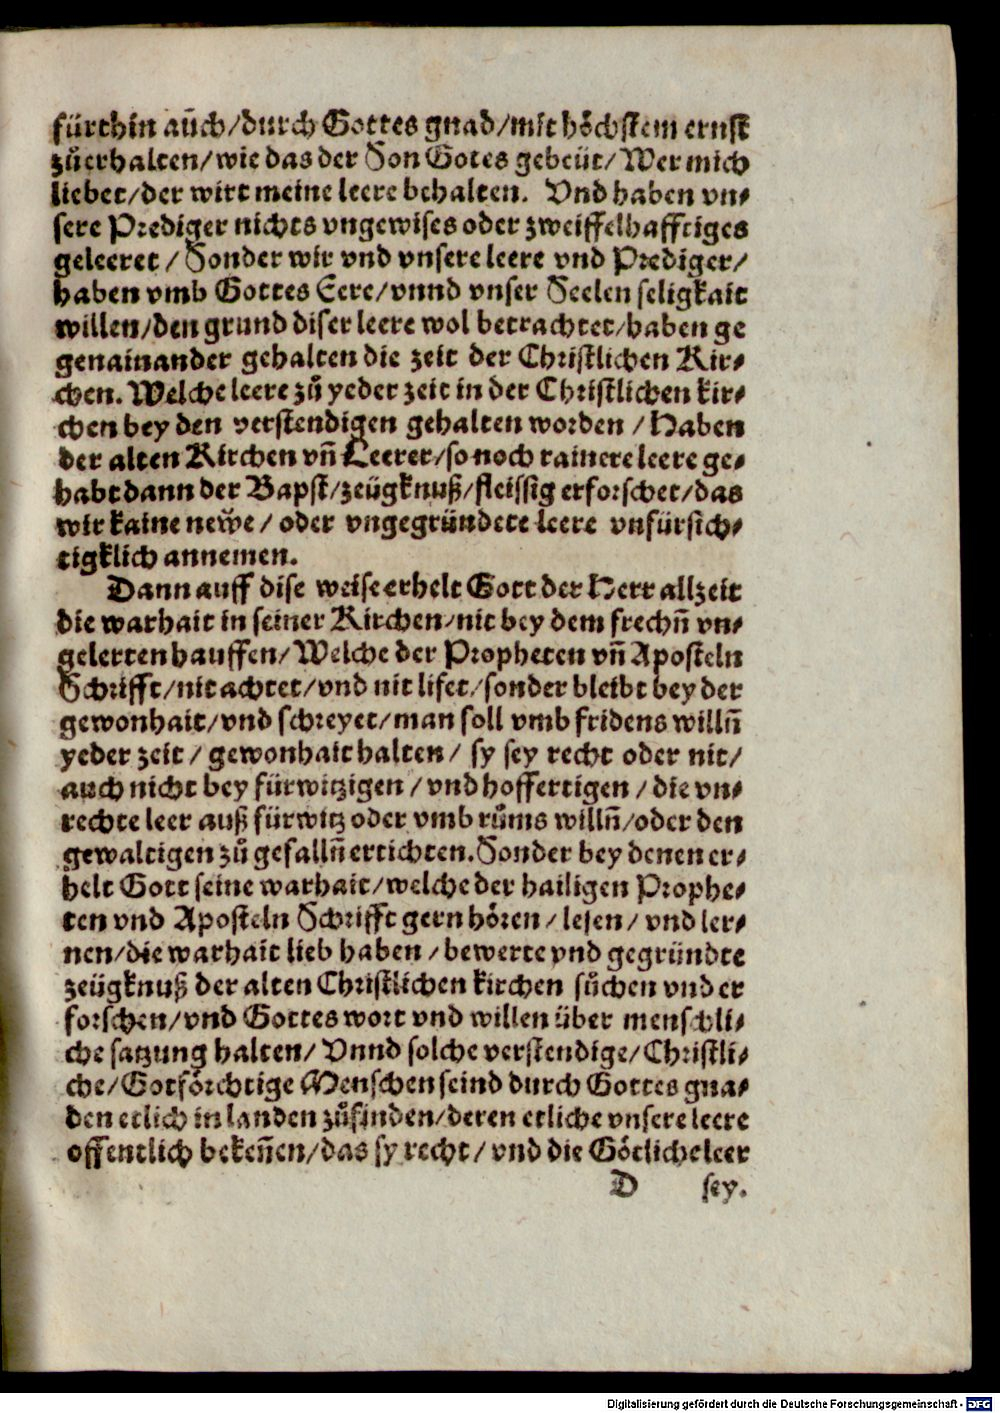 fürthin aůch/durch Gottes gnad/mit höchstem ernst
zůerhalten/wie das der Son Gotes gebeüt/Wer mich
liebet/der wirt meine leere behalten. Vnd haben vn⸗
sere Prediger nichts vngewises oder zweiffelhafftiges
geleeret / Sonder wir vnd vnsere leere vnd Prediger/
haben vmb Gottes Eere/vnnd vnser Seelen seligkait
willen/den grund diser leere wol betrachtet/haben ge
genainander gehalten die zeit der Christlichen Kir⸗
chen. Welche leere zů yeder zeit in der Christlichen kir⸗
chen bey den verstendigen gehalten worden / Haben
der alten Kirchen vñ Leerer/so noch rainere leere ge⸗
habt dann der Bapst/zeügknuß/fleissig erforschet/das
wir kaine newe / oder vngegründete leere vnfürsich⸗
tigklich annemen.
Dann auff dise weise erhelt Gott der Herr allzeit
die warhait in seiner Kirchen/nit bey dem frechñ vn⸗
gelerten hauffen/Welche der Propheten vñ Aposteln
Schrifft/nit achtet/vnd nit liset/sonder bleibt bey der
gewonhait/vnd schreyet/man soll vmb fridens willñ
yeder zeit / gewonhait halten / sy sey recht oder nit/
auch nicht bey fürwitzigen / vnd hoffertigen / die vn⸗
rechte leer auß fürwitz oder vmb růms willñ/oder den
gewaltigen zů gefallñ ertichten. Sonder bey denen er⸗
helt Gott seine warhait/welche der hailigen Prophe⸗
ten vnd Aposteln Schrifft gern hören / lesen / vnd ler⸗
nen/die warhait lieb haben / bewerte vnd gegründte
zeügknuß der alten Christlichen kirchen sůchen vnd er
forschen/vnd Gottes wort vnd willen über menschli⸗
che satzung halten/ Vnnd solche verstendige/Christli⸗
che/Gotförchtige Menschen seind durch Gottes gna⸗
den etlich in landen zůfinden/deren etliche vnsere leere
offentlich bekeñen/das sy recht/ vnd die Götliche leer
D sey.
Digitalisierung gefördert durch die Deutsche Forschungsgemeinschaft - DFG